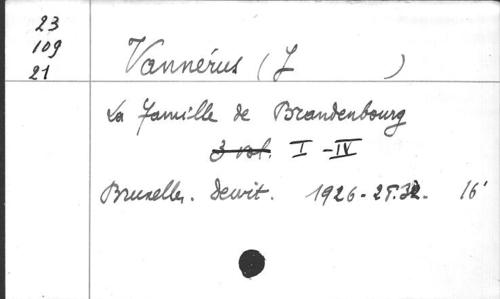 23
109
21
Vannérus (J )
La famille de Brandenbourg
3 vol. I - IV
Bruxelles. Dewit. 1926-28.32. 16'